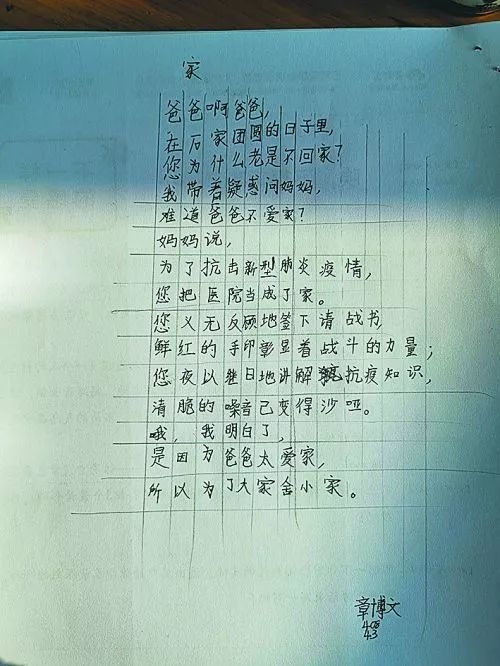 家
爸爸啊爸爸，
在万家团圆的日子里，
您为什么老是不回家？
我带着疑惑问妈妈，
难道爸爸不爱家？
妈妈说，
为了抗击新型肺炎疫情，
您把医院当成了家。
您义无反顾地签下请战书，
鲜红的手印彰显着战斗的力量；
您夜以继日地讲解抗疫知识，
清脆的嗓音已变得沙哑。
哦，我明白了，
是因为爸爸太爱家，
所以为了大家舍小家。
章博文